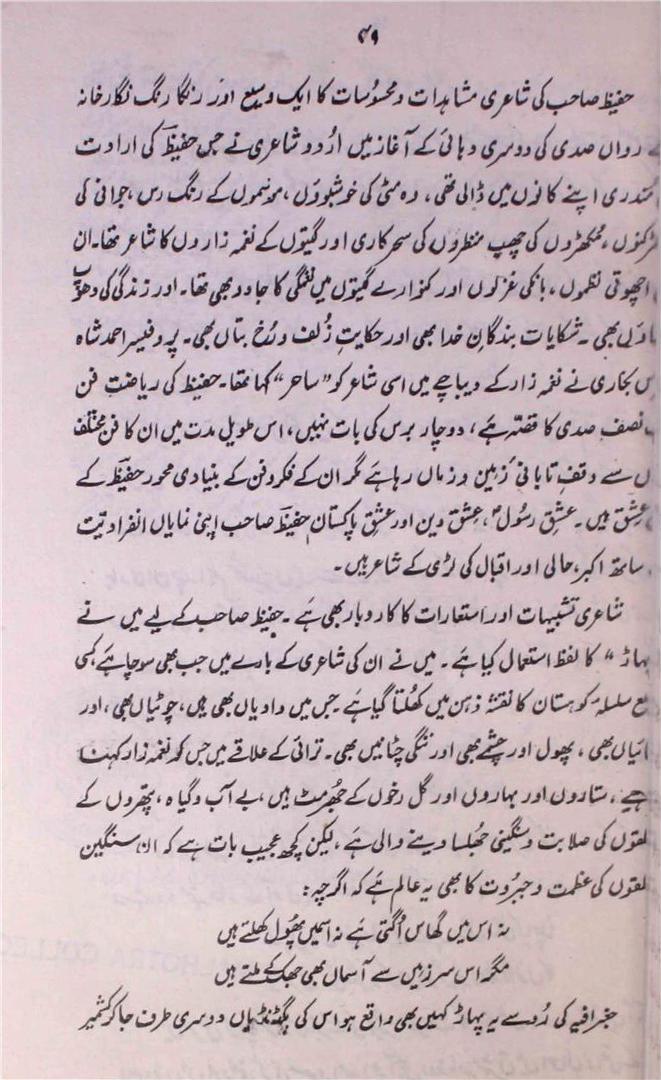 ۴۹
حفیظ صاحب کی شاعری مشاہدات و محسوسات کا ایک وسیع اور رنگا رنگ نگار خانہ
رواں صدی کی دوسری دہائی کے آغاز میں اُردو شاعری نے جس حفیظؔ کی ارادت
مُندری اپنے کانوں میں ڈالی تھی، وہ مٹی کی خوشبوؤں، موسموں کے رنگ رس، جوانی کی
مُکھڑوں کی چھب منظروں کی سحر کاری اور گیتوں کے نغمہ زاروں کا شاعر تھا۔ ان
اچھوتی نظموں، بانکی غزلوں اور کنوارے گیتوں میں نغمگی کا جادو بھی تھا۔ اور زندگی کی دھوپ
بھی۔ شکایات بندگانِ خدا بھی اور حکایتِ زُلف و رُخ بتاں بھی۔ پروفیسر احمد شاہ
بخاری نے نغمہ زار کے دیباچے میں اسی شاعر کو "ساحر" کہا تھا۔ حفیظ کی ریاضتِ فن
نصف صدی کا قصّہ ہے، دو چار برس کی بات نہیں، اس طویل مدت میں ان کا فن مختلف
سے وقفِ تابانیٔ زمین و زماں رہا ہے مگر ان کے فکر و فن کے بنیادی محور حفیظؔ کے
عشق ہیں۔ عشقِ رسُولؐ، عشقِ دین اور عشقِ پاکستان حفیظؔ صاحب اپنی نمایاں انفرادیت
ساتھ اکبر، حالی اور اقبال کی لڑی کے شاعر ہیں۔
شاعری تشبیہات اور استعارات کا کاروبار بھی ہے۔ حفیظ صاحب کے لیے میں نے
پہاڑ" کا لفظ استعمال کیا ہے۔ میں نے ان کی شاعری کے بارے میں جب بھی سوچا ہے کسی
سلسلۂ کوہستان کا نقشہ ذہن میں کھُلتا گیا ہے جس میں وادیاں بھی ہیں، چوٹیاں بھی، اور
بھی، پھول اور چشمے بھی اور ننگی چٹانیں بھی۔ ترائی کے علاقے میں جس کو نغمہ زار کہنا
ستاروں اور بہاروں اور گل رخوں کے جھرمٹ ہیں، بے آب و گیاہ، پتھروں کے
کی صلابت و سنگینی جھُلسا دینے والی ہے، لیکن کچھ عجیب بات ہے کہ ان سنگین
کی عظمت و جبروت کا بھی یہ عالم ہے کہ اگرچہ:
نہ اس میں گھاس اُگتی ہے نہ اسمیں پھُول کھلتے ہیں
مگر اس سرزمیں سے آسماں بھی جھک کے ملتے ہیں
جغرافیہ کی رُو سے یہ پہاڑ کہیں بھی واقع ہو اس کی پگڈنڈیاں دوسری طرف جا کر کشمیر